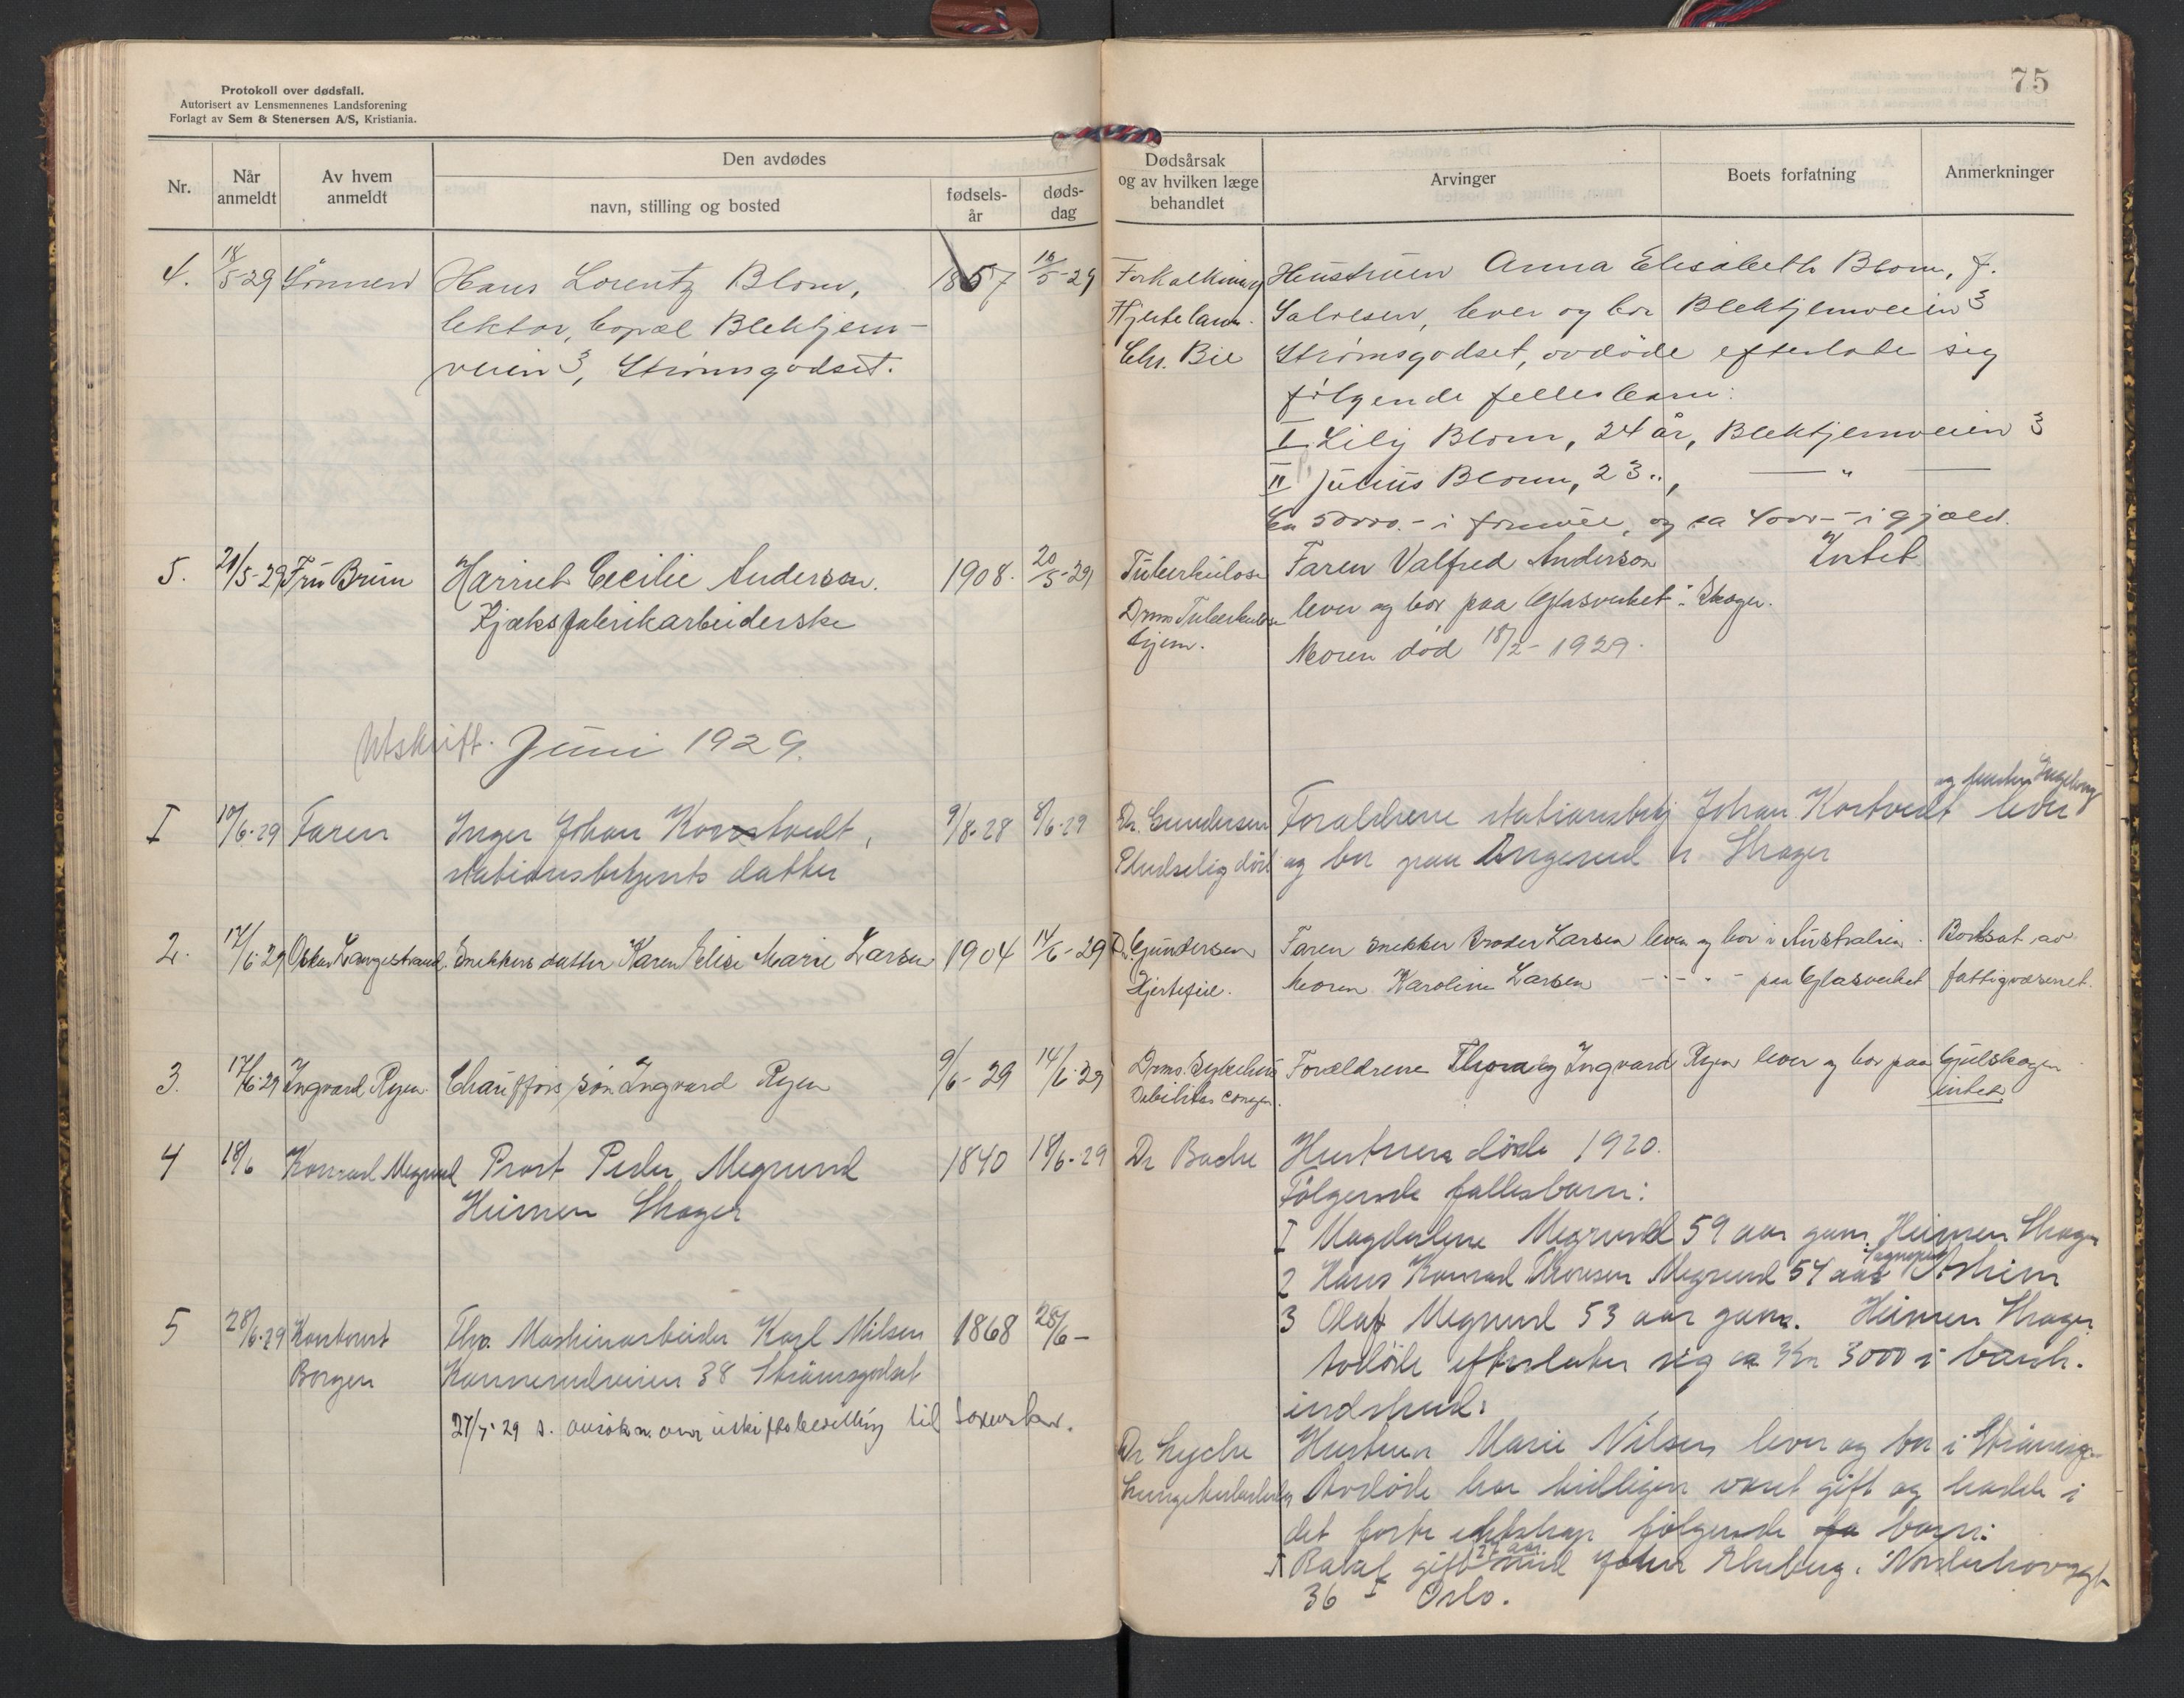 Protokoll over dødsfall.
Autorisert av Lensmennenes Landsforening
Forlagt av Sem & Stenersen A/S, Kristiania.
Nr.
Når anmeldt
Av hvem anmeldt
Den avdødes
navn, stilling og bosted
fødsels-år
døds-dag
4. 18/5-29 Sønnen Hans Lorentz Blom, 1857 16/5-29
lektor, Blektjern-
veien 3, Strømsgodset.
5. 21/5-29 Fru Brun Harriet Cecilie Anderson. 1908. 20/5-29
Kjæksfabrikarbeiderske
Utskrift. Juni 1929.
I 10/6-29 Faren Inger Johan Korstvedt, 9/8-28 8/6-29
stationsbetjents datter
2. 17/6-29 Oskar Langestrand. Snekkers datter Karen Elise Marie Larsen 1904 14/6-29
3. 17/6-29 Ingvard Ryen Chaufførs søn Ingvard Ryen 9/6-29 14/6-29
4 18/6 Konrad Megrund Prost Peder Megrund 1840 18/6-29
Heimen Skoger
5 28/6-29 Kontorist Thv. Maskinarbeider Karl Nilsen 1868 28/6-
Borgen Konnerudveien 38 Strømsgodset
27/7-29 s. ansøkn. om uskiftebevilling til sorenskr.
75
Dødsårsak
og av hvilken læge
behandlet
Arvinger
Boets forfatning
Anmerkninger
Forkalkning Hustruen Anna Elisabeth Blom, f.
Hjertelam. Salvesen, lever og bor Blektjernveien 3
Chr. Bie Strømsgodset, avdøde efterlate sig
følgende fellesbarn:
I. Lily Blom, 24 år, Blektjernveien 3
II Julius Blom, 23 ", — " —
Ca 50000.- i formue, og ca 4000.- i gjæld.
Tuberkulose Faren Valfred Anderson Intet
Drms Tuberkulose lever og bor paa Glasverket i Skoger.
hjem. Moren død 18/2-1929.
og fru Ingeborg
Dr. Gundersen Foraldrene stationsbetj Johan Korstvedt lever
Pludselig død og bor paa Angerud i Skoger
Dr. Gundersen Faren snekker Broder Larsen lever og bor i Australien. Bortsat av
Hjertefeil. Moren Karoline Larsen - " - " - paa Glasverket fattigvæsenet.
Drms. Sykehus Forældrene Thora og Ingvard Ryen lever og bor paa Gulskogen
Debilitas congen. intet.
Dr Bache Hustruen døde 1920.
Følgende fallesbarn:
I Magdalene Megrund 59 aar gam. Heimen Skoger
2 Hans Konrad Thoresen Megrund 54 aar Askim
3 Olaf Megrund 53 aar gam. Heimen Skoger
Avdøde efterlater sig ca Kr 3000 i bank-
indskud.
Dr Lyche Hustruen Marie Nilsen lever og bor i Strømsg-
Lungetuberkulos Avdøde har tidligere været gift og hadde i
det første ekteskap følgende barn:
I Ragnh. gift med John Ekeberg. Norderhovsgt
36 I Oslo.